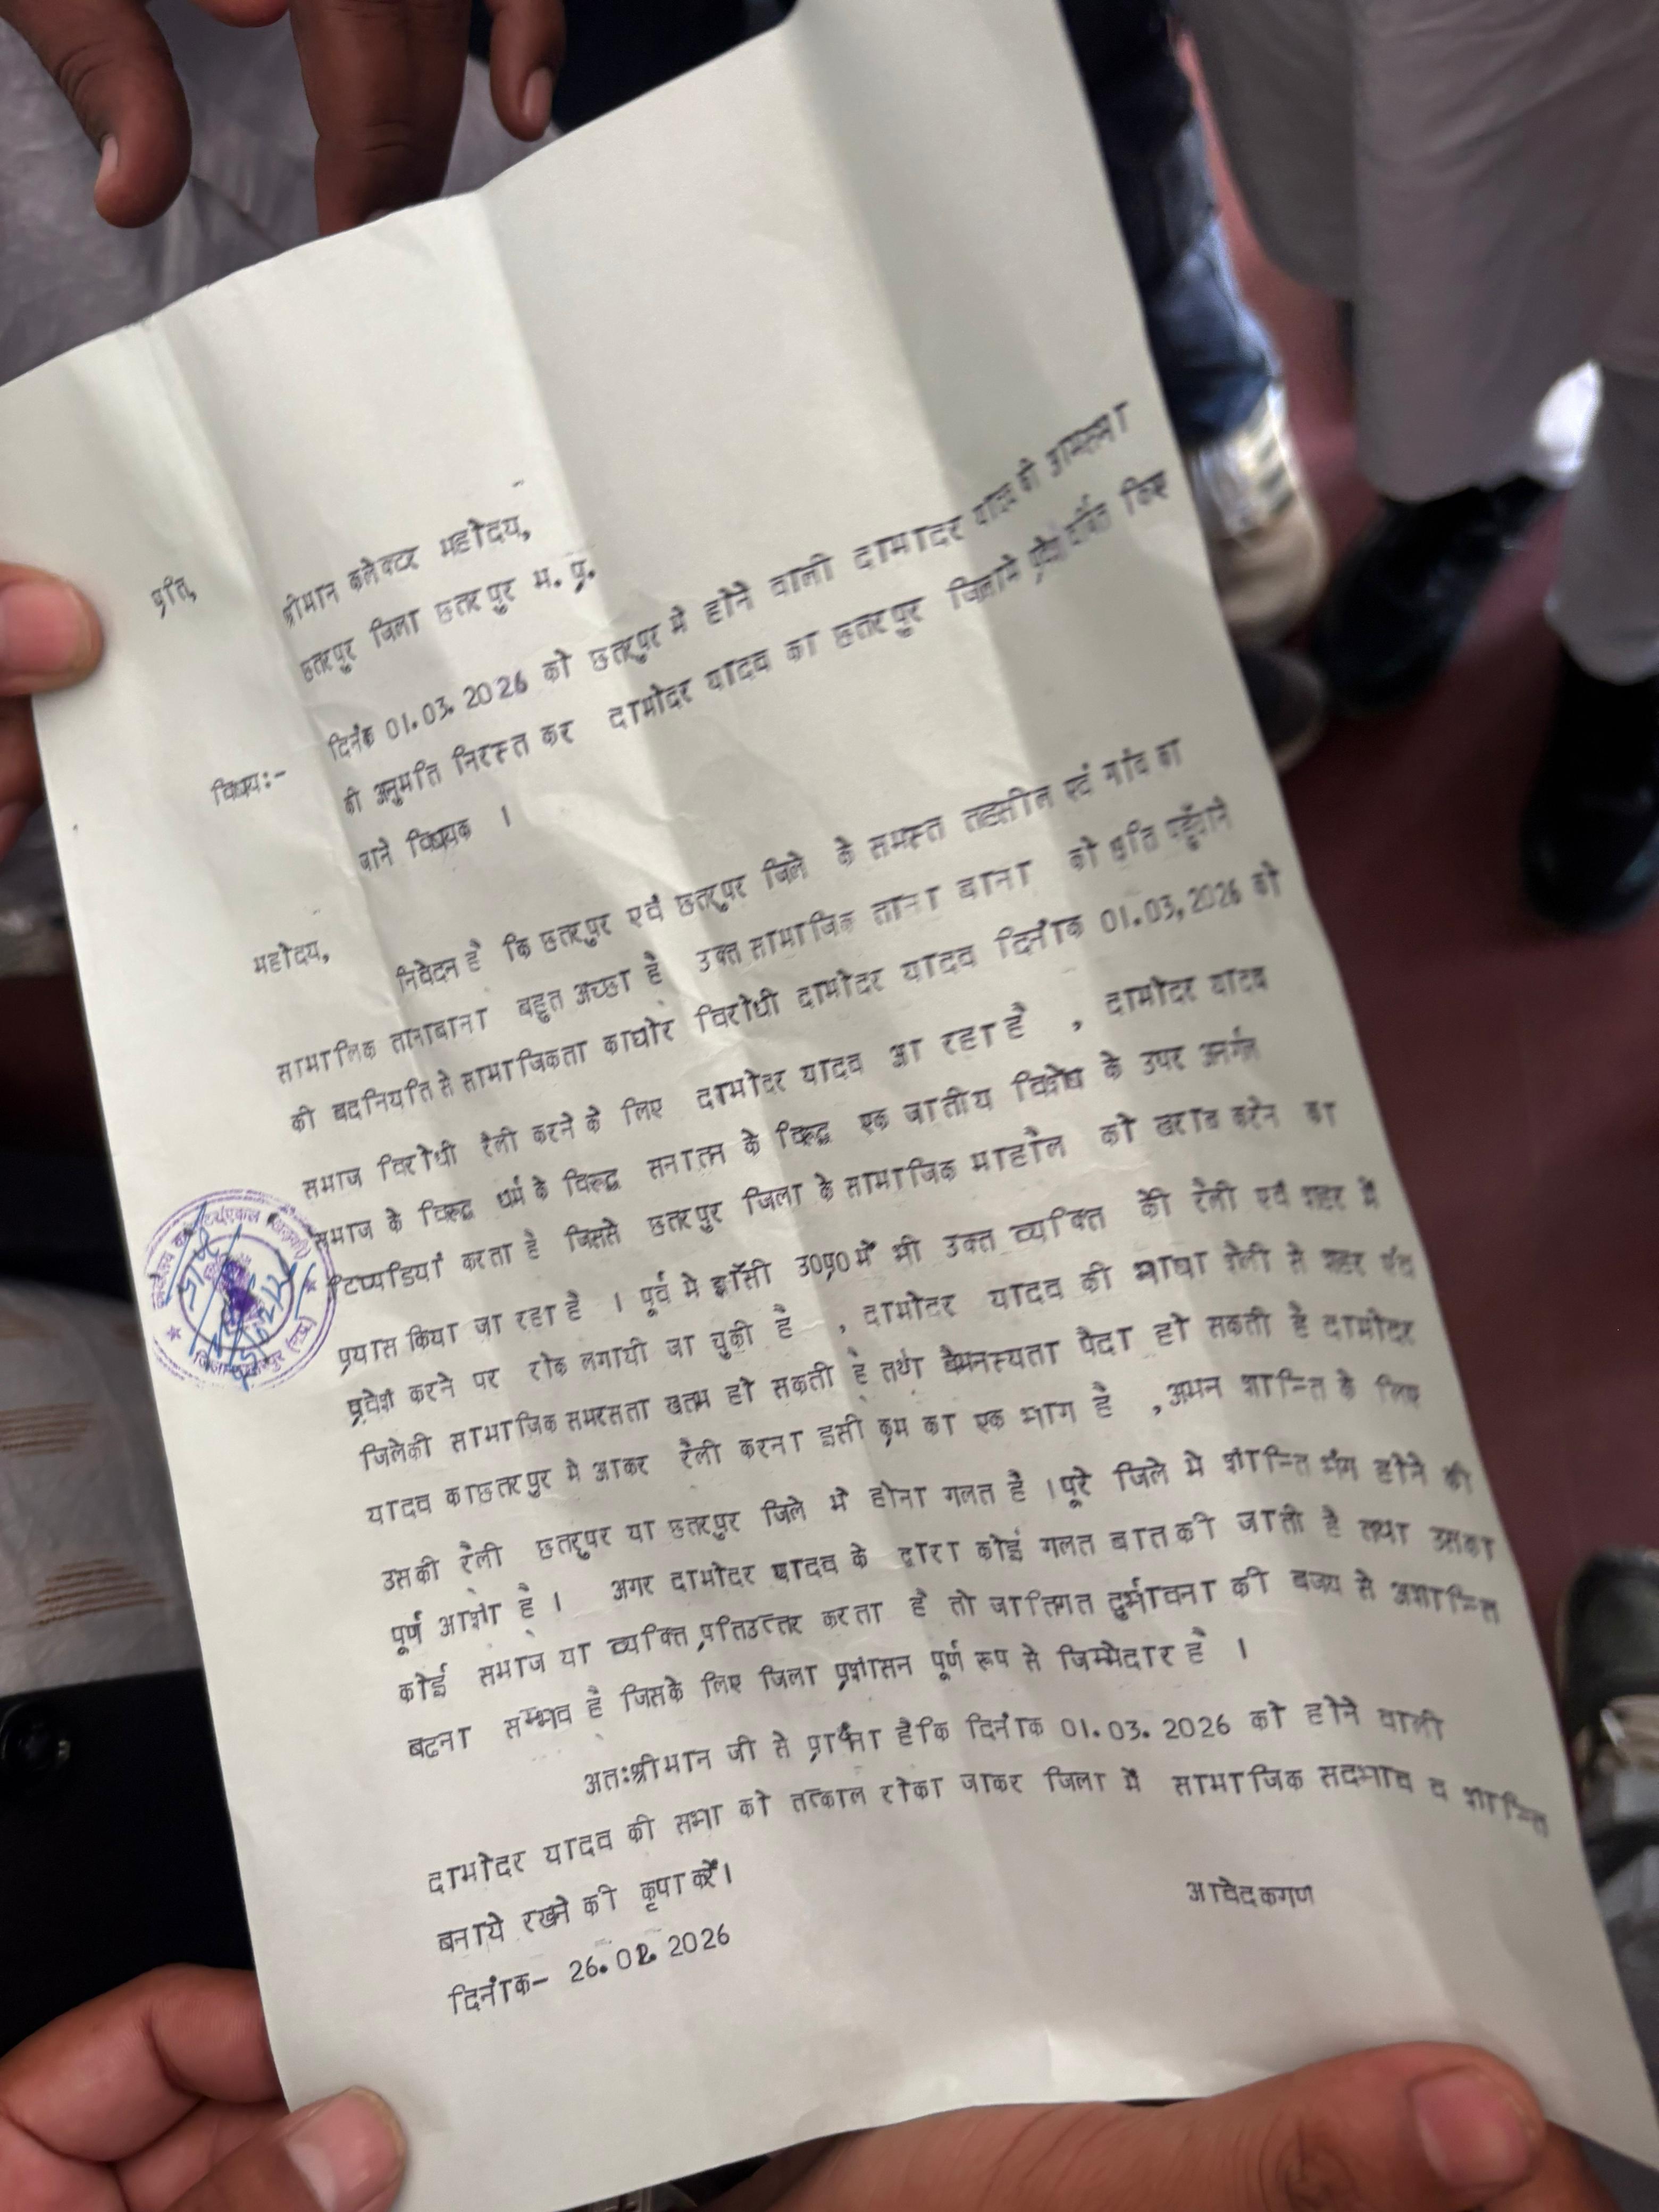 प्रति,
श्रीमान कलेक्टर महोदय,
छतरपुर जिला छतरपुर म.प्र.
विषय:- दिनांक 01.03.2026 को छतरपुर मे होने वाली दामोदर यादव की आमसभा
की अनुमति निरस्त कर दामोदर यादव का छतरपुर जिलामे किए
जाने विषयक ।
महोदय,
निवेदन है कि छतरपुर एवं छतरपुर जिले के समस्त तहसील एवं गांव का
सामालिक तानाबाना बहुत अच्छा है उक्त सामाजिक ताना बाना को क्षति पहुँचाने
की बदनियति से सामाजिकता काघोर विरोधी दामोदर यादव दिनांक 01.03.2026 को
समाज विरोधी रैली करने के लिए दामोदर यादव आ रहा है , दामोदर यादव
समाज के विरूद्ध धर्म के विरूद्ध सनातन के विरूद्ध एक जातीय विशेष के उपर अनर्गल
टिप्पडियां करता है जिससे छतरपुर जिला के सामाजिक माहौल को खराब करेन का
प्रयास किया जा रहा है । पूर्व मे झाँसी उ0प्र0 में भी उक्त व्यक्ति की रैली एवं शहर में
प्रवेश करने पर रोक लगायी जा चुकी है , दामोदर यादव की भाषा शैली से शहर एंव
जिलेकी सामाजिक समरसता खतम हो सकती है तथा बैमनस्यता पैदा हो सकती है दामोदर
यादव काछतरपुर मे आकर रैली करना इसी क्रम का एक भाग है , अमन शान्ति के लिए
उसकी रैली छतरपुर या छतरपुर जिले में होना गलत है । पूरे जिले मे शान्ति भंग होने की
पूर्ण आशा है । अगर दामोदर यादव के द्वारा कोई गलत बात की जाती है तथा उसका
कोई समाज या व्यक्ति प्रतिउत्तर करता है तो जातिगत दुर्भावना की बजय से अशान्ति
बटना सम्भव है जिसके लिए जिला प्रशासन पूर्ण रूप से जिम्मेदार है ।
अत:श्रीमान जी से प्रार्थना हैकि दिनांक 01.03.2026 को होने वाली
दामोदर यादव की सभा को तत्काल रोका जाकर जिला में सामाजिक सदभाव व शान्ति
बनाये रखने की कृपा करें ।
दिनांक- 26.02.2026
आवेदकगण